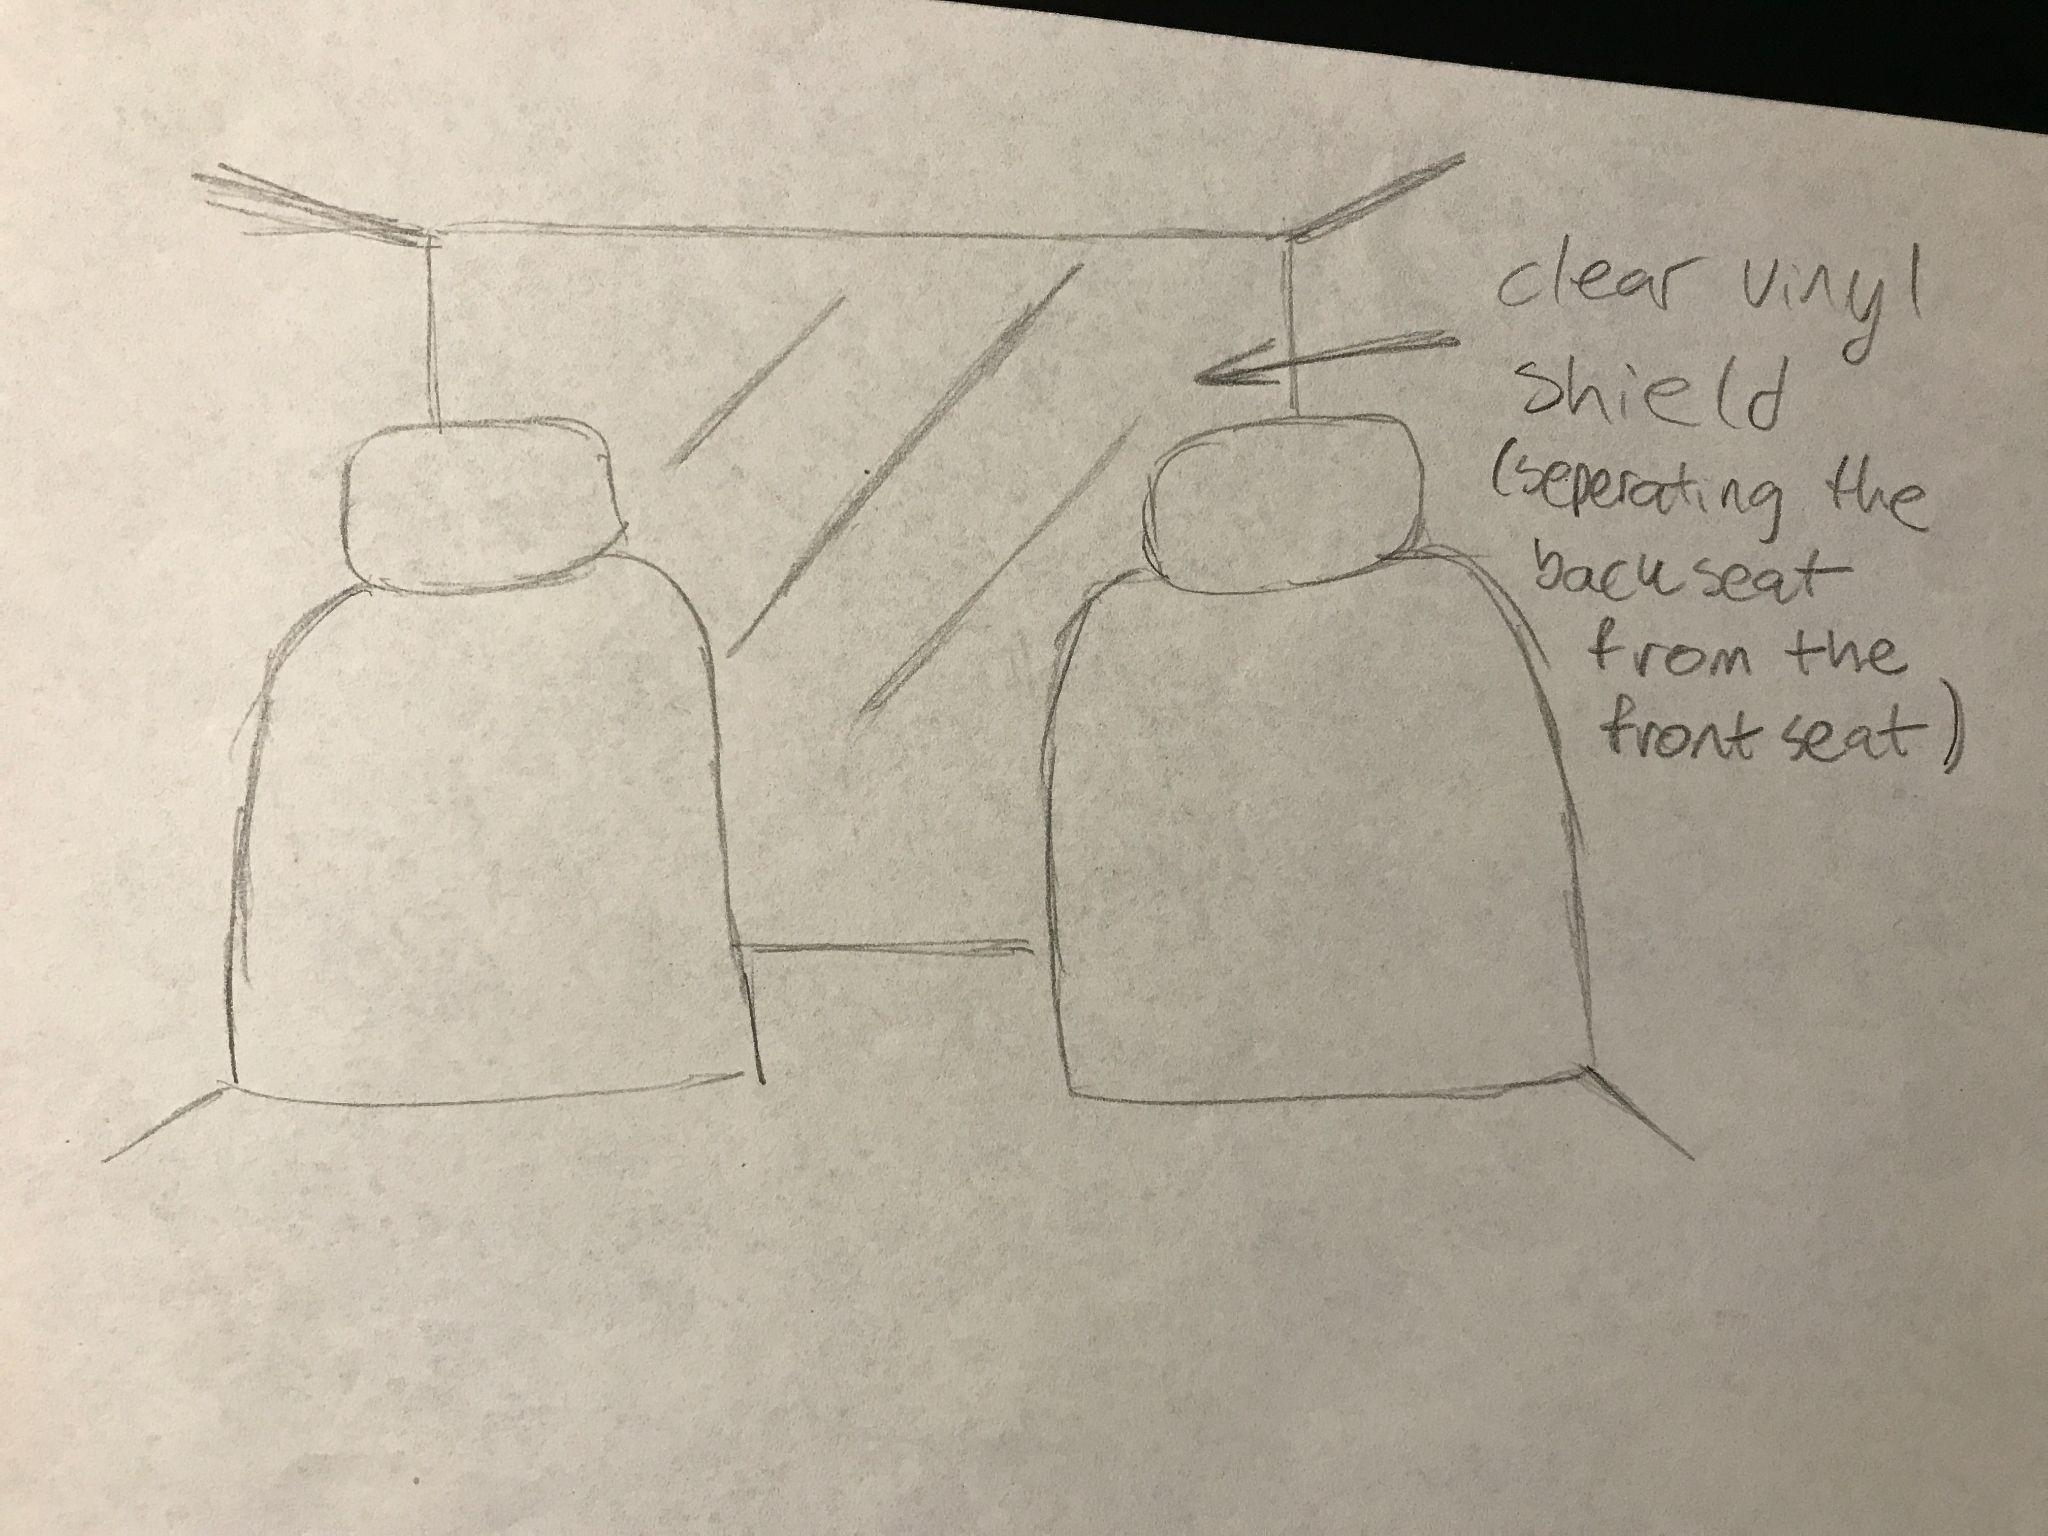 clear vinyl
shield
(seperating the
backseat
from the
frontseat)